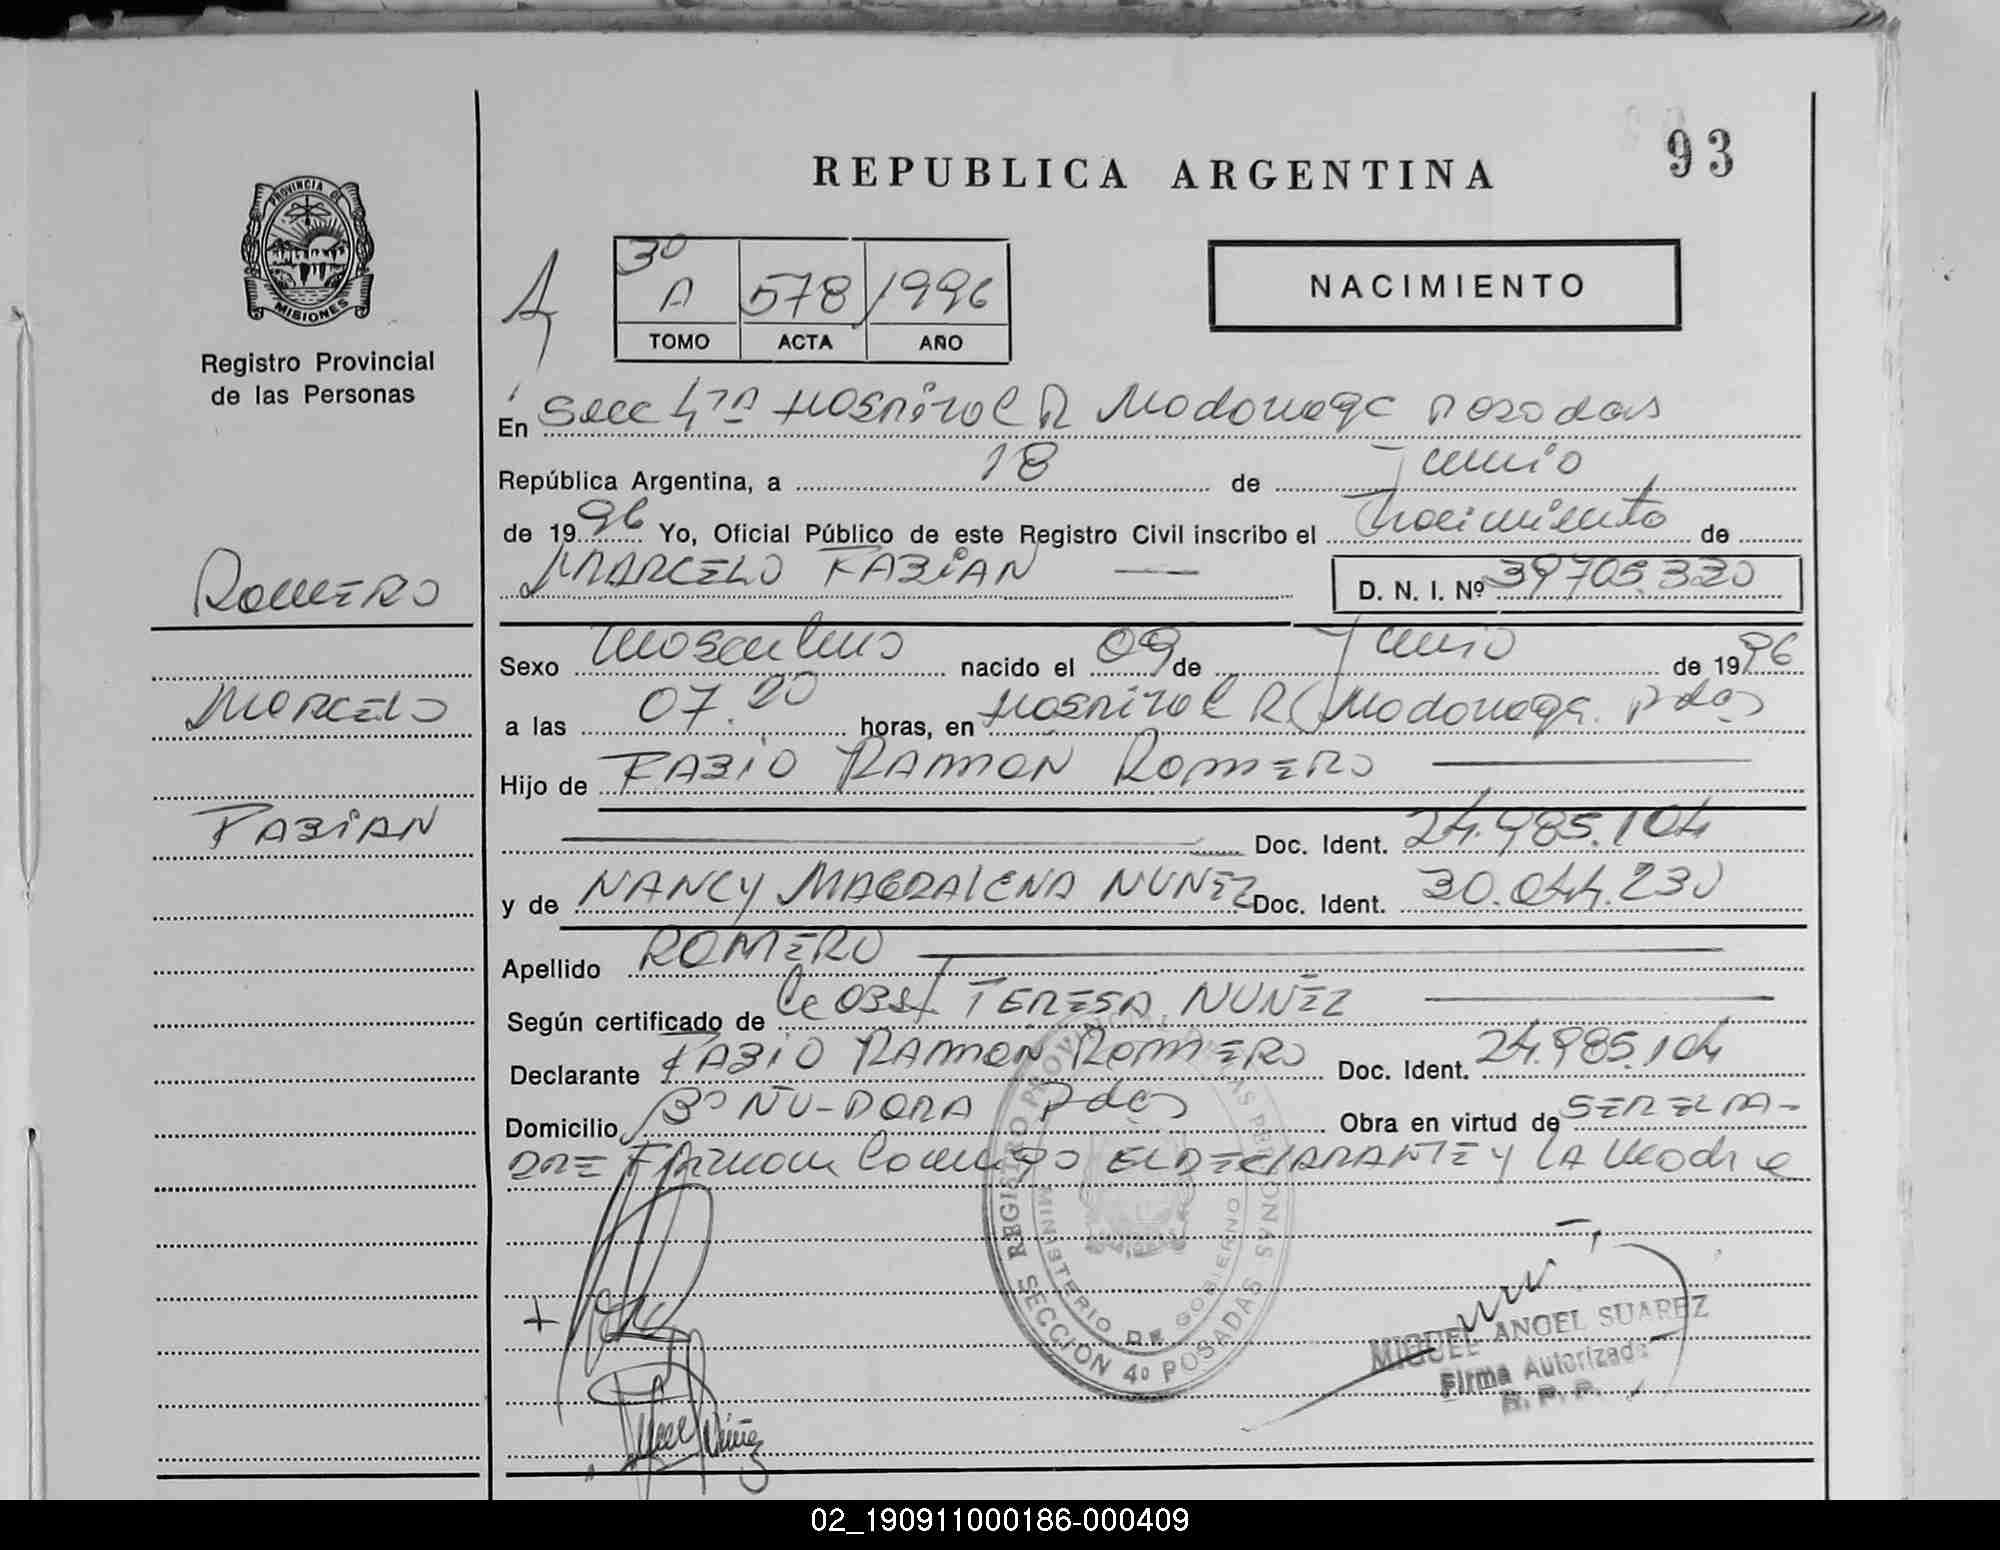 93
REPUBLICA ARGENTINA
PROVINCIA DE
MISIONES
Registro Provincial
de las Personas
3º
A 578 1996
TOMO ACTA AÑO
NACIMIENTO
En Secc 4ta Hospital R Madariaga Posadas
República Argentina, a 18 de Junio
de 1996 Yo, Oficial Público de este Registro Civil inscribo el Nacimiento de
MARCELO FABIAN D. N. I. Nº 39705.320
ROMERO
MARCELO
FABIAN
Sexo Masculino nacido el 09 de Junio de 1996
a las 07.20 horas, en Hospital R Madariaga. Pdas
Hijo de FABIO RAMON ROMERO
Doc. Ident. 24.985.104
y de NANCY MAGDALENA NUÑEZ Doc. Ident. 30.044.230
Apellido ROMERO
Según certificado de TERESA NUÑEZ
Declarante FABIO RAMON ROMERO Doc. Ident. 24.985.104
Domicilio Bº ÑU-PORA Pdas Obra en virtud de SER EL PA-
DRE Firman Conmigo EL DECLARANTE Y LA Madre
REGISTRO PROVINCIAL DE LAS PERSONAS
MINISTERIO DE GOBIERNO
SECCION 4º POSADAS
MIGUEL ANGEL SUAREZ
Firma Autorizada
R. P. P.
Nuñez
02_190911000186-000409